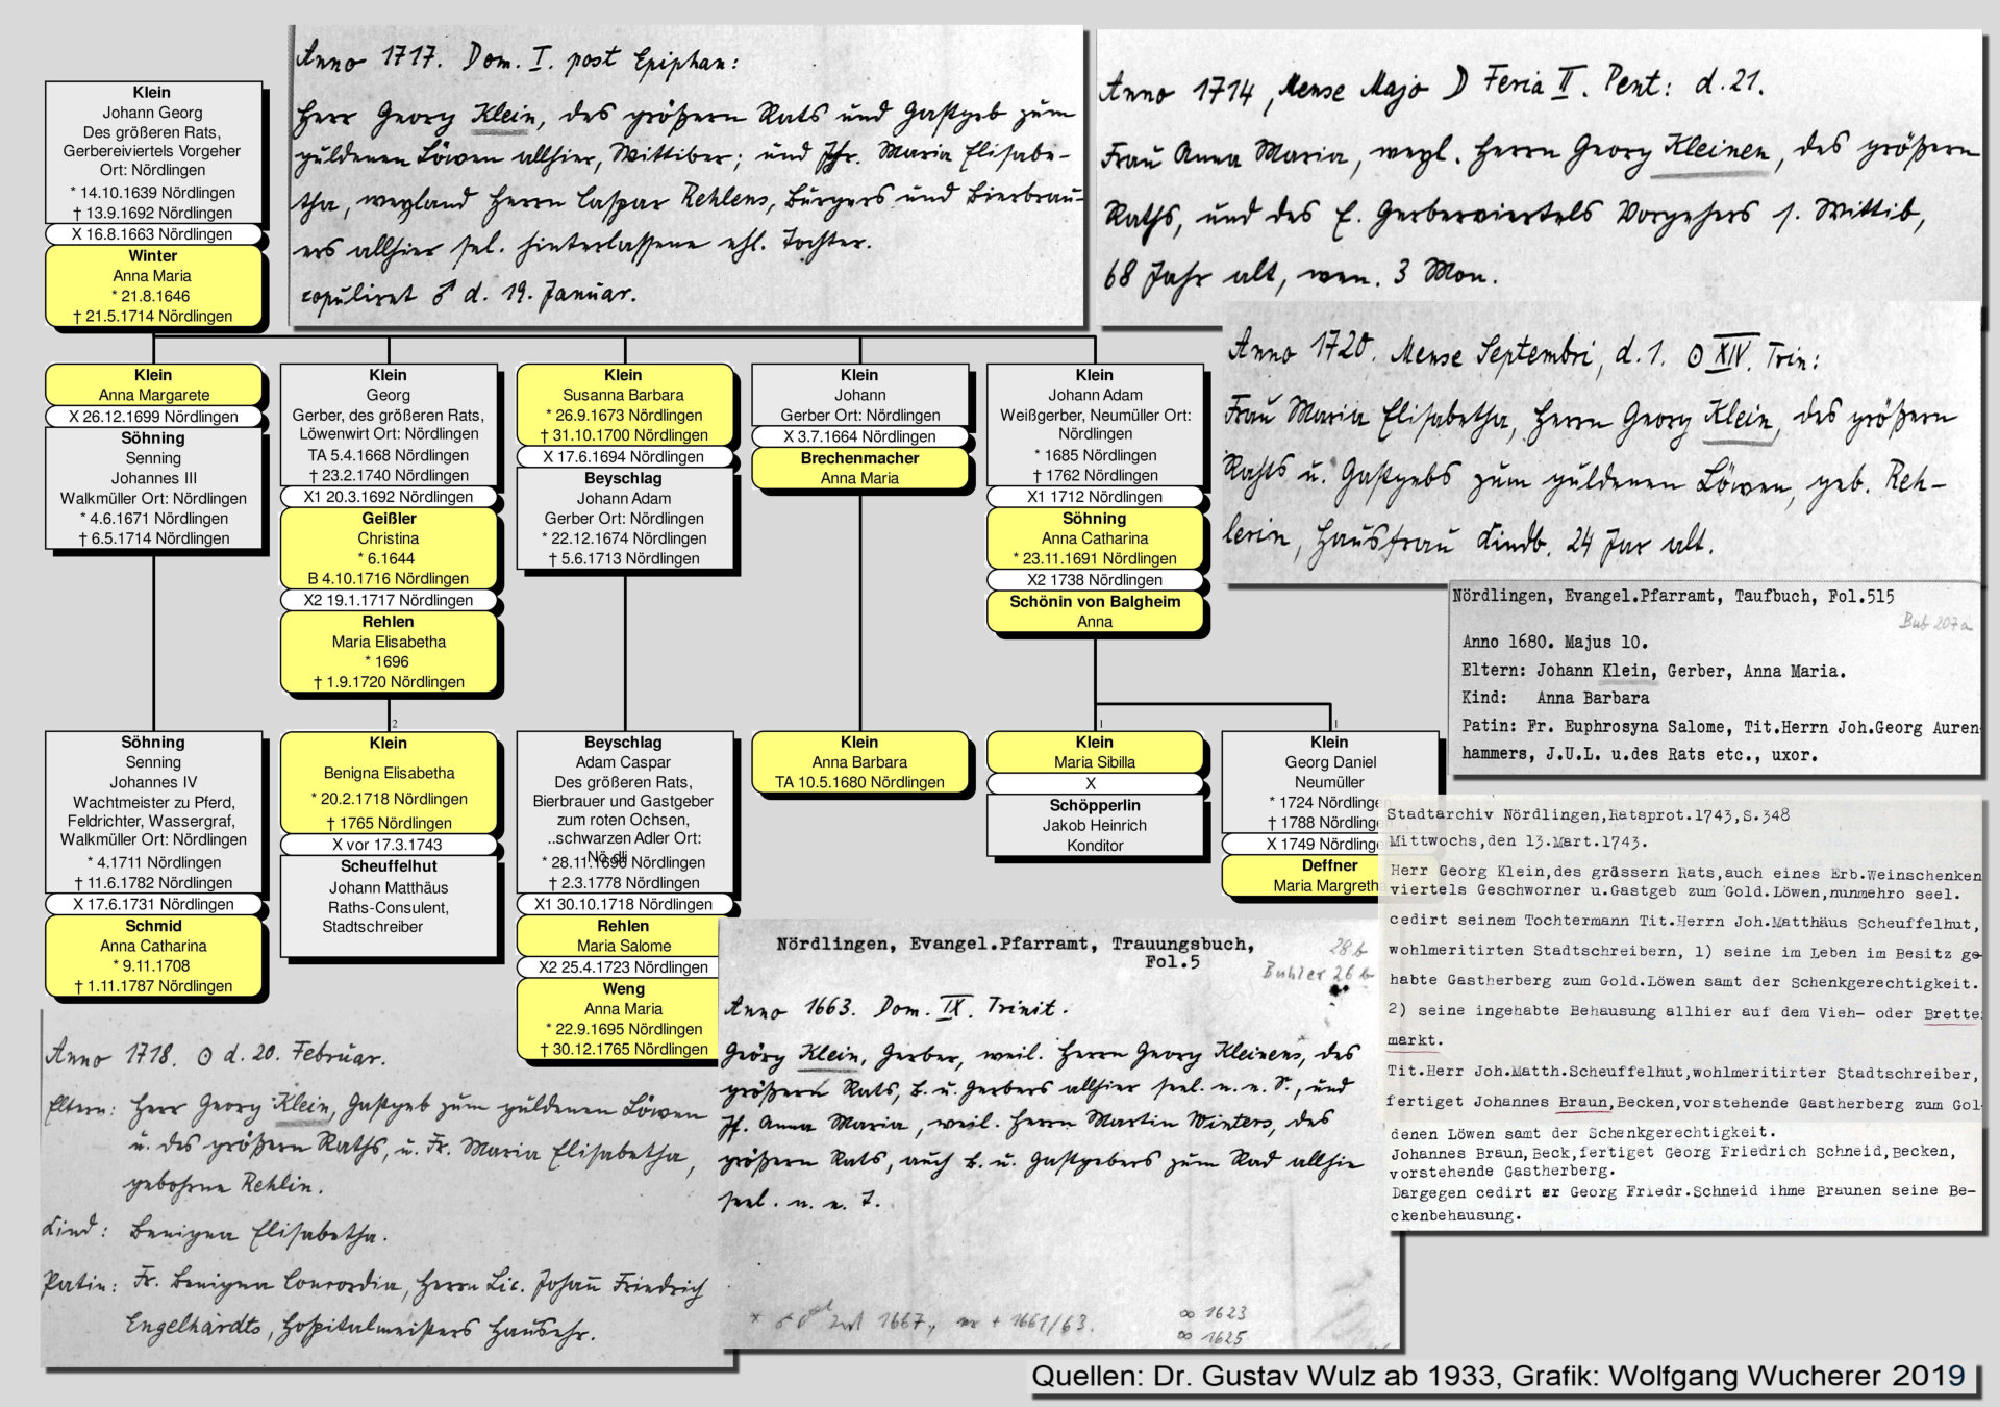 Klein
Johann Georg
Des größeren Rats,
Gerbereiviertels Vorgeher
Ort: Nördlingen
* 14.10.1639 Nördlingen
† 13.9.1692 Nördlingen
X 16.8.1663 Nördlingen
Winter
Anna Maria
* 21.8.1646
† 21.5.1714 Nördlingen
Anno 1717. Dom. I. post Epiphan:
Herr Georg Klein, des größern Rats und Gastgeb zum
güldenen Löwen allhier, Wittiber; und Jfr. Maria Elisabe-
tha, weyland Herrn Caspar Rehlens, Burgers und Bierbrau-
ers allhier sel. hinterlassene ehl. Tochter.
copuliret ♂ d. 19. Januar.
Anno 1714, Mense Majo D Feria II. Pent: d. 21.
Frau Anna Maria, weyl. Herrn Georg Kleinen, des größern
Raths, und des E. Gerberviertels Vorgehers s. Wittib,
68 Jahr alt, wen. 3 Mon.
Anno 1720. Mense Septembri, d. 1. ⊙ XIV. Trin:
Frau Maria Elisabetha, Herrn Georg Klein, des größern
Rahts u. Gastgebs zum güldenen Löwen, geb. Reh-
lerin, Hausfrau Kindb. 24 Jar alt.
Klein
Anna Margarete
X 26.12.1699 Nördlingen
Söhning
Senning
Johannes III
Walkmüller Ort: Nördlingen
* 4.6.1671 Nördlingen
† 6.5.1714 Nördlingen
Klein
Georg
Gerber, des größeren Rats,
Löwenwirt Ort: Nördlingen
TA 5.4.1668 Nördlingen
† 23.2.1740 Nördlingen
X1 20.3.1692 Nördlingen
Geißler
Christina
* 6.1644
B 4.10.1716 Nördlingen
X2 19.1.1717 Nördlingen
Rehlen
Maria Elisabetha
* 1696
† 1.9.1720 Nördlingen
Klein
Susanna Barbara
* 26.9.1673 Nördlingen
† 31.10.1700 Nördlingen
X 17.6.1694 Nördlingen
Beyschlag
Johann Adam
Gerber Ort: Nördlingen
* 22.12.1674 Nördlingen
† 5.6.1713 Nördlingen
Klein
Johann
Gerber Ort: Nördlingen
X 3.7.1664 Nördlingen
Brechenmacher
Anna Maria
Klein
Johann Adam
Weißgerber, Neumüller Ort:
Nördlingen
* 1685 Nördlingen
† 1762 Nördlingen
X1 1712 Nördlingen
Söhning
Anna Catharina
* 23.11.1691 Nördlingen
X2 1738 Nördlingen
Schönin von Balgheim
Anna
Nördlingen, Evangel.Pfarramt, Taufbuch, Fol.515
Bub 207a
Anno 1680. Majus 10.
Eltern: Johann Klein, Gerber, Anna Maria.
Kind: Anna Barbara
Patin: Fr. Euphrosyna Salome, Tit.Herrn Joh.Georg Auren
hammers, J.U.L. u.des Rats etc., uxor.
Söhning
Senning
Johannes IV
Wachtmeister zu Pferd,
Feldrichter, Wassergraf,
Walkmüller Ort: Nördlingen
* 4.1711 Nördlingen
† 11.6.1782 Nördlingen
X 17.6.1731 Nördlingen
Schmid
Anna Catharina
* 9.11.1708
† 1.11.1787 Nördlingen
2
Klein
Benigna Elisabetha
* 20.2.1718 Nördlingen
† 1765 Nördlingen
X vor 17.3.1743
Scheuffelhut
Johann Matthäus
Raths-Consulent,
Stadtschreiber
Beyschlag
Adam Caspar
Des größeren Rats,
Bierbrauer und Gastgeber
zum roten Ochsen,
..schwarzen Adler Ort:
* 28.11.1696 Nördlingen
† 2.3.1778 Nördlingen
X1 30.10.1718 Nördlingen
Rehlen
Maria Salome
X2 25.4.1723 Nördlingen
Weng
Anna Maria
* 22.9.1695 Nördlingen
† 30.12.1765 Nördlingen
Klein
Anna Barbara
TA 10.5.1680 Nördlingen
I
Klein
Maria Sibilla
X
Schöpperlin
Jakob Heinrich
Konditor
II
Klein
Georg Daniel
Neumüller
* 1724 Nördlinge
† 1788 Nördling
X 1749 Nördling
Deffner
Maria Margreth
Stadtarchiv Nördlingen,Ratsprot.1743,S.348
Mittwochs,den 13.Mart.1743.
Herr Georg Klein,des grässern Rats,auch eines Erb.Weinschenken
viertels Geschworner u.Gastgeb zum Gold.Löwen,nunmehro seel.
cedirt seinem Tochtermann Tit.Herrn Joh.Matthäus Scheuffelhut,
wohlmeritirten Stadtschreibern, 1) seine im Leben im Besitz ge-
habte Gastherberg zum Gold.Löwen samt der Schenkgerechtigkeit.
2) seine ingehabte Behausung allhier auf dem Vieh- oder Brette
markt.
Tit.Herr Joh.Matth.Scheuffelhut,wohlmeritirter Stadtschreiber,
fertiget Johannes Braun,Becken,vorstehende Gastherberg zum Gol-
denen Löwen samt der Schenkgerechtigkeit.
Johannes Braun,Beck,fertiget Georg Friedrich Schneid,Becken,
vorstehende Gastherberg.
Dargegen cedirt er Georg Friedr.Schneid ihme Braunen seine Be-
ckenbehausung.
Nördlingen, Evangel.Pfarramt, Trauungsbuch,
Fol.5
28b
Buhler 26 b
Anno 1663. Dom. IX. Trinit.
Geörg Klein, Gerber, weil. Herrn Georg Kleinens, des
größern Rats, B. u. Gerbers allhier seel. n. e. S., und
Jf. Anna Maria, weil. Herrn Martin Winters, des
größern Rats, auch B. u. Gastgebers zum Rad allhie
seel. n. e. T.
1667, + 1661/63.
∞ 1623
∞ 1625
Anno 1718. ⊙ d. 20. Februar.
Eltern: Herr Georg Klein, Gastgeb zum güldenen Löwen
u. des größern Raths, u. Fr. Maria Elisabetha,
gebohrne Rehlin.
Kind: Benigna Elisabetha.
Patin: Fr. Benigna Concordia, Herrn Lic. Johan Friedrich
Engelhardts, Hospitalmeisters Hausehr.
Quellen: Dr. Gustav Wulz ab 1933, Grafik: Wolfgang Wucherer 2019